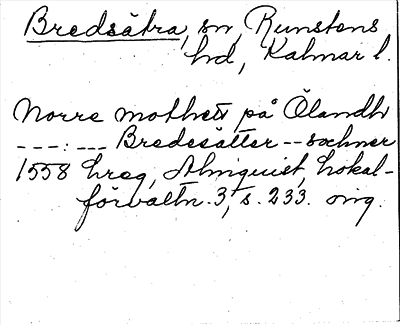 Bredsätra, sn, Runstens
hd, Kalmar l.
Norre mothett på Ölandh
---:--- Bredesätter -- sochner
1558 hreg, Almquist, Lokal-
förvaltn. 3, s. 233. orig.